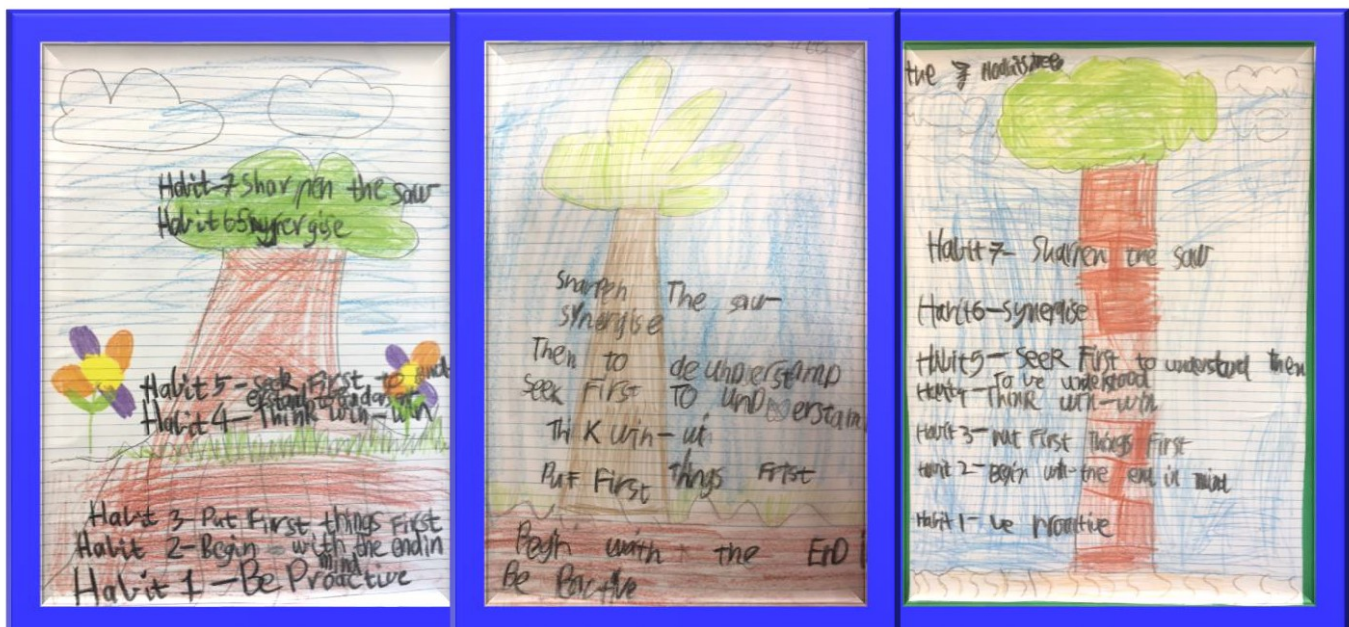 Habit-7 Sharpen the saw
Habit 6 Synergise
Habit 5 - Seek First to und
erstand
Habit 4 - Think win-win
Habit 3 - Put First things First
Habit 2 - Begin with the end in
mind
Habit 1 - Be Proactive
sharpen The saw
synergise
Then to de unDerstanD
Seek First TO unDerstan
Thi K win-wi
Put First things First
Begin with the EnD i
Be
the 7
Habit 7 - Sharpen the saw
Habit 6 - synergise
Habit 5 - Seek First to understand then
To be understood
Habit 4 - Think win-win
Habit 3 - Put First Things First
Habit 2 - Begin with the end in mind
Habit 1 - be Proactive